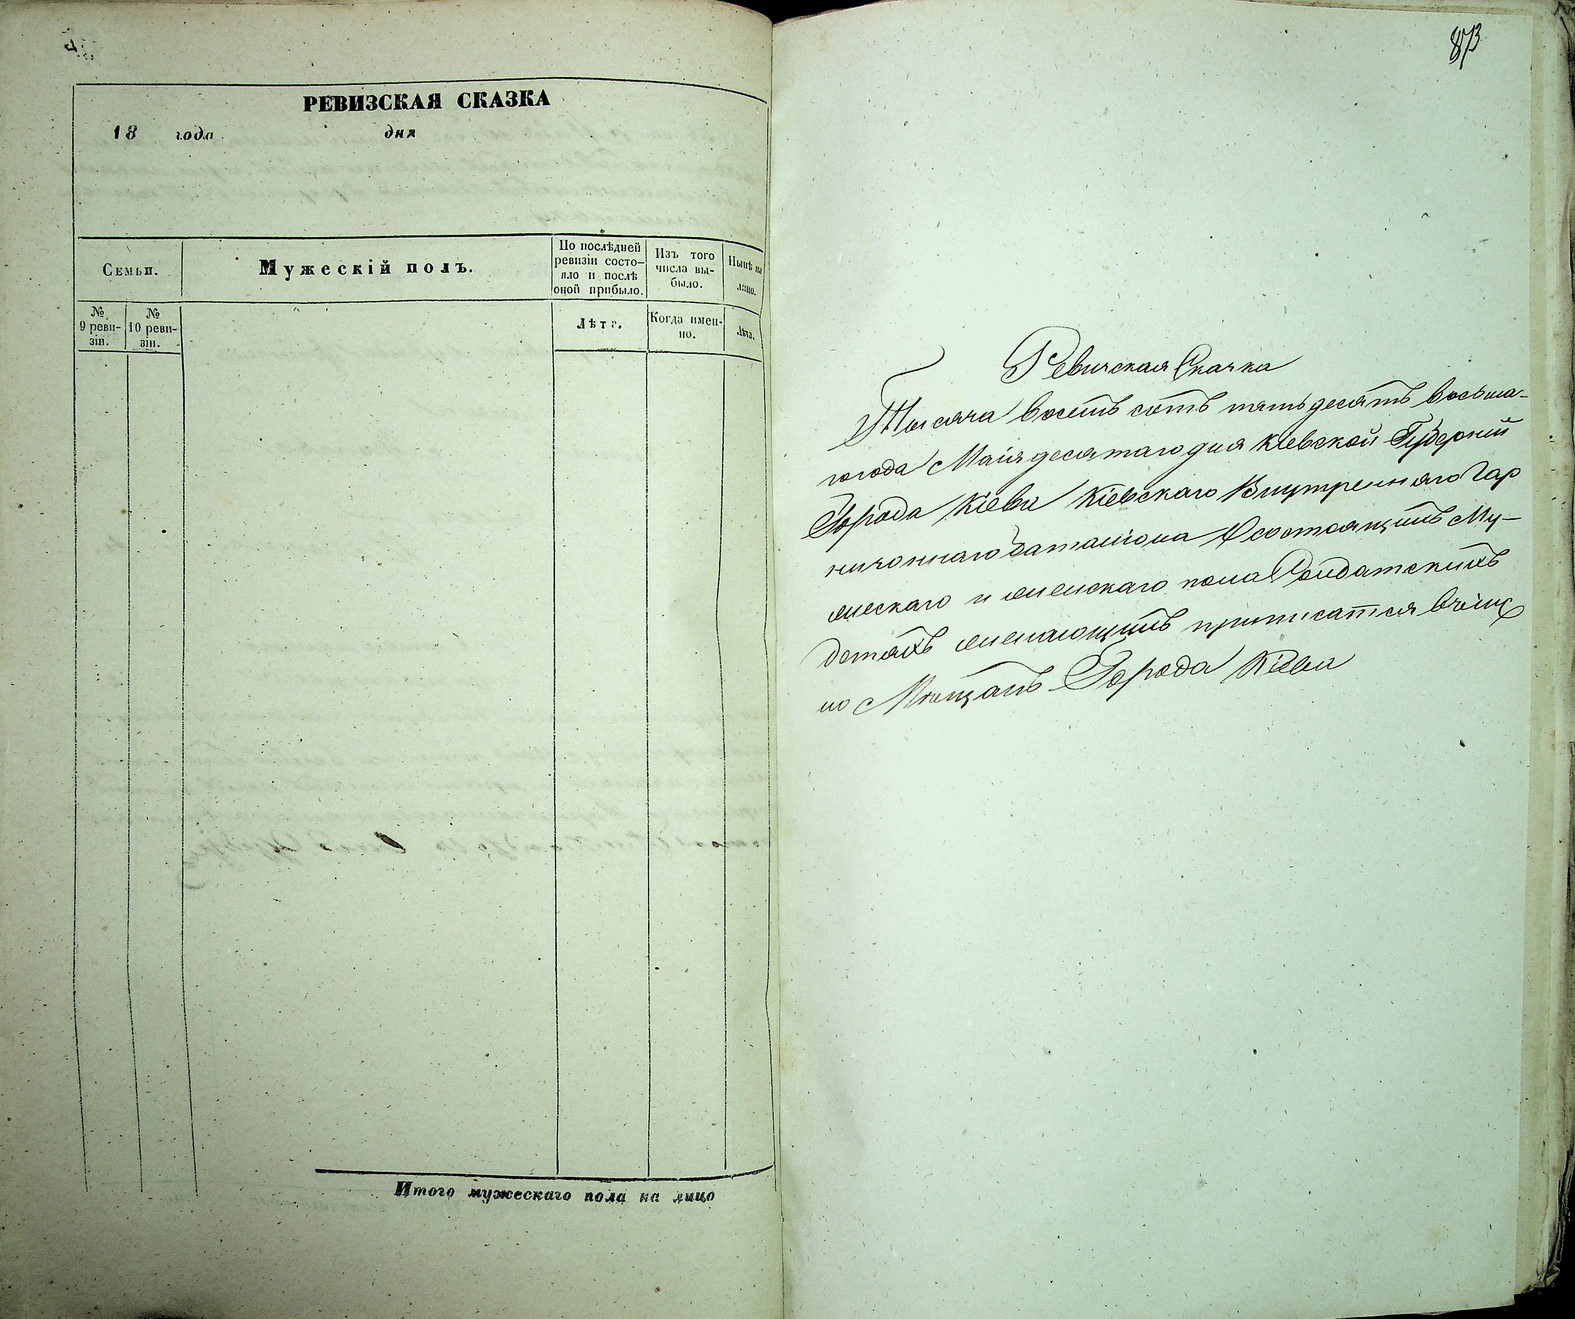 РЕВИЗСКАЯ СКАЗКА
18 года дня
Семьи.
Мужескій полъ.
По послѣдней
ревизіи состо-
яло и послѣ
оной прибыло.
Изъ того
числа вы-
было.
Нынѣ на
лицо.
№
9 реви-
зіи.
№
10 реви-
зіи.
Лѣта.
Когда имен-
но.
Лѣта.
Итого мужескаго пола на лицо
873
Ревизская Сказка
Тысяча восемь сотъ пятьдесятъ восьма-
го года Маія десятаго дня Кіевской Губерній
Города Кіева Кіевскаго Внутренняго Гар
низоннаго баталіона О состоящихъ Му-
жескаго и женскаго пола Солдатскихъ
детяхъ желающихъ приписатся в число
Мѣщанъ Города Кіева